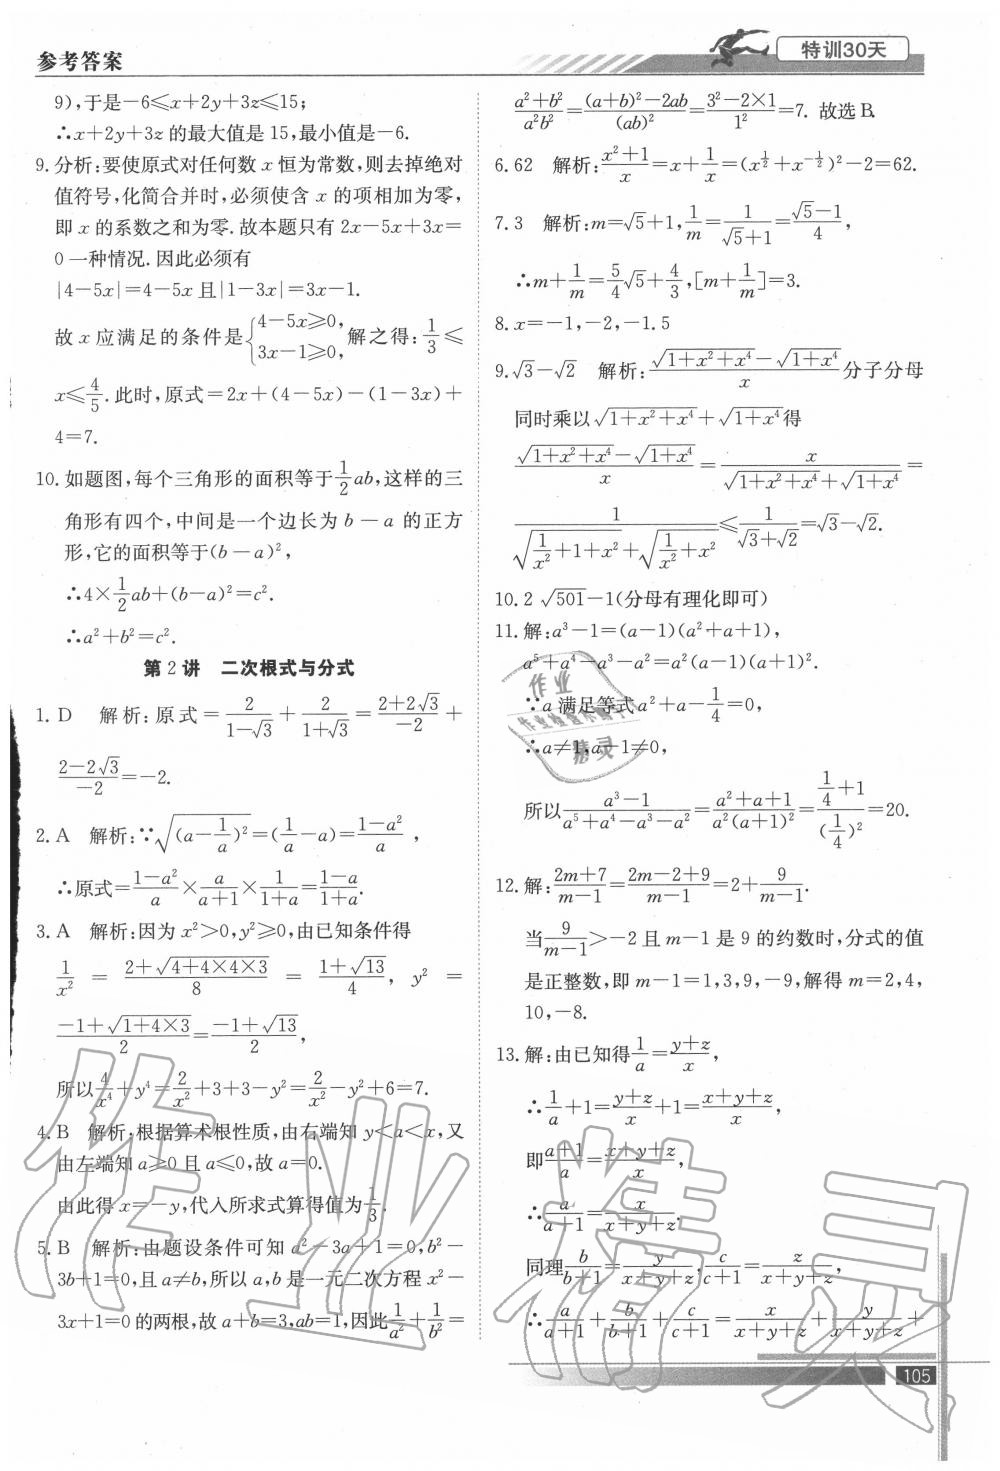 参考答案
特训30天
9),于是-6≤x+2y+3z≤15;
∴x+2y+3z 的最大值是 15,最小值是-6.
9. 分析:要使原式对任何数 x 恒为常数,则去掉绝对
值符号,化简合并时,必须使含 x 的项相加为零,
即 x 的系数之和为零. 故本题只有 2x-5x+3x=
0 一种情况. 因此必须有
|4-5x|=4-5x 且|1-3x|=3x-1.
故 x 应满足的条件是{4-5x≥0, 3x-1≥0, 解之得: 1/3 ≤
x≤4/5. 此时,原式=2x+(4-5x)-(1-3x)+
4=7.
10. 如题图,每个三角形的面积等于1/2 ab,这样的三
角形有四个,中间是一个边长为 b-a 的正方
形,它的面积等于(b-a)²,
∴4×1/2 ab+(b-a)²=c².
∴a²+b²=c².
第 2 讲 二次根式与分式
1. D 解析:原式=2/(1-√3)+2/(1+√3)=(2+2√3)/(-2)+
(2-2√3)/(-2)=-2.
2. A 解析:∵√((a-1/a)²)=(1/a-a)=(1-a²)/a,
∴原式=(1-a²)/a×a/(a+1)×1/(1+a)=(1-a)/(1+a).
3. A 解析:因为 x²>0,y²≥0,由已知条件得
1/x²=(2+√(4+4×4×3))/8=(1+√13)/4, y²=
(-1+√(1+4×3))/2=(-1+√13)/2,
所以4/x⁴+y⁴=2/x²+3+3-y²=2/x²-y²+6=7.
4. B 解析:根据算术根性质,由右端知 y<a<x,又
由左端知 a≥0 且 a≤0,故 a=0.
由此得 x=-y,代入所求式算得值为1/3.
5. B 解析:由题设条件可知 a²-3a+1=0,b²-
3b+1=0,且 a≠b,所以 a,b 是一元二次方程 x²-
3x+1=0 的两根,故 a+b=3,ab=1,因此1/a²+1/b²=
(a²+b²)/(a²b²)=((a+b)²-2ab)/(ab)²=(3²-2×1)/1²=7. 故选 B.
6. 62 解析:(x²+1)/x=x+1/x=(x^(1/2)+x^(-1/2))²-2=62.
7. 3 解析:m=√5+1,1/m=1/(√5+1)=(√5-1)/4,
∴m+1/m=5/4 √5+4/3,[m+1/m]=3.
8. x=-1,-2,-1.5
9. √3-√2 解析:(√(1+x²+x⁴)-√(1+x⁴))/x 分子分母
同时乘以√(1+x²+x⁴)+√(1+x⁴)得
(√(1+x²+x⁴)-√(1+x⁴))/x=x/(√(1+x²+x⁴)+√(1+x⁴))=
1/(√(1/x²+1+x²)+√(1/x²+x²))≤1/(√3+√2)=√3-√2.
10. 2 √501-1(分母有理化即可)
11. 解:a³-1=(a-1)(a²+a+1),
a⁵+a⁴-a³-a²=a²(a-1)(a+1)².
∵a 满足等式 a²+a-1/4=0,
∴a≠1,a-1≠0,
所以(a³-1)/(a⁵+a⁴-a³-a²)=(a²+a+1)/(a²(a+1)²)=(1/4+1)/(1/4)²=20.
12. 解:(2m+7)/(m-1)=(2m-2+9)/(m-1)=2+9/(m-1).
当9/(m-1)>-2 且 m-1 是 9 的约数时,分式的值
是正整数,即 m-1=1,3,9,-9,解得 m=2,4,
10,-8.
13. 解:由已知得1/a=(y+z)/x,
∴1/a+1=(y+z)/x+1=(x+y+z)/x,
即(a+1)/a=(x+y+z)/x,
∴a/(a+1)=x/(x+y+z).
同理b/(b+1)=y/(x+y+z),c/(c+1)=z/(x+y+z),
∴a/(a+1)+b/(b+1)+c/(c+1)=x/(x+y+z)+y/(x+y+z)+
105
作业精灵